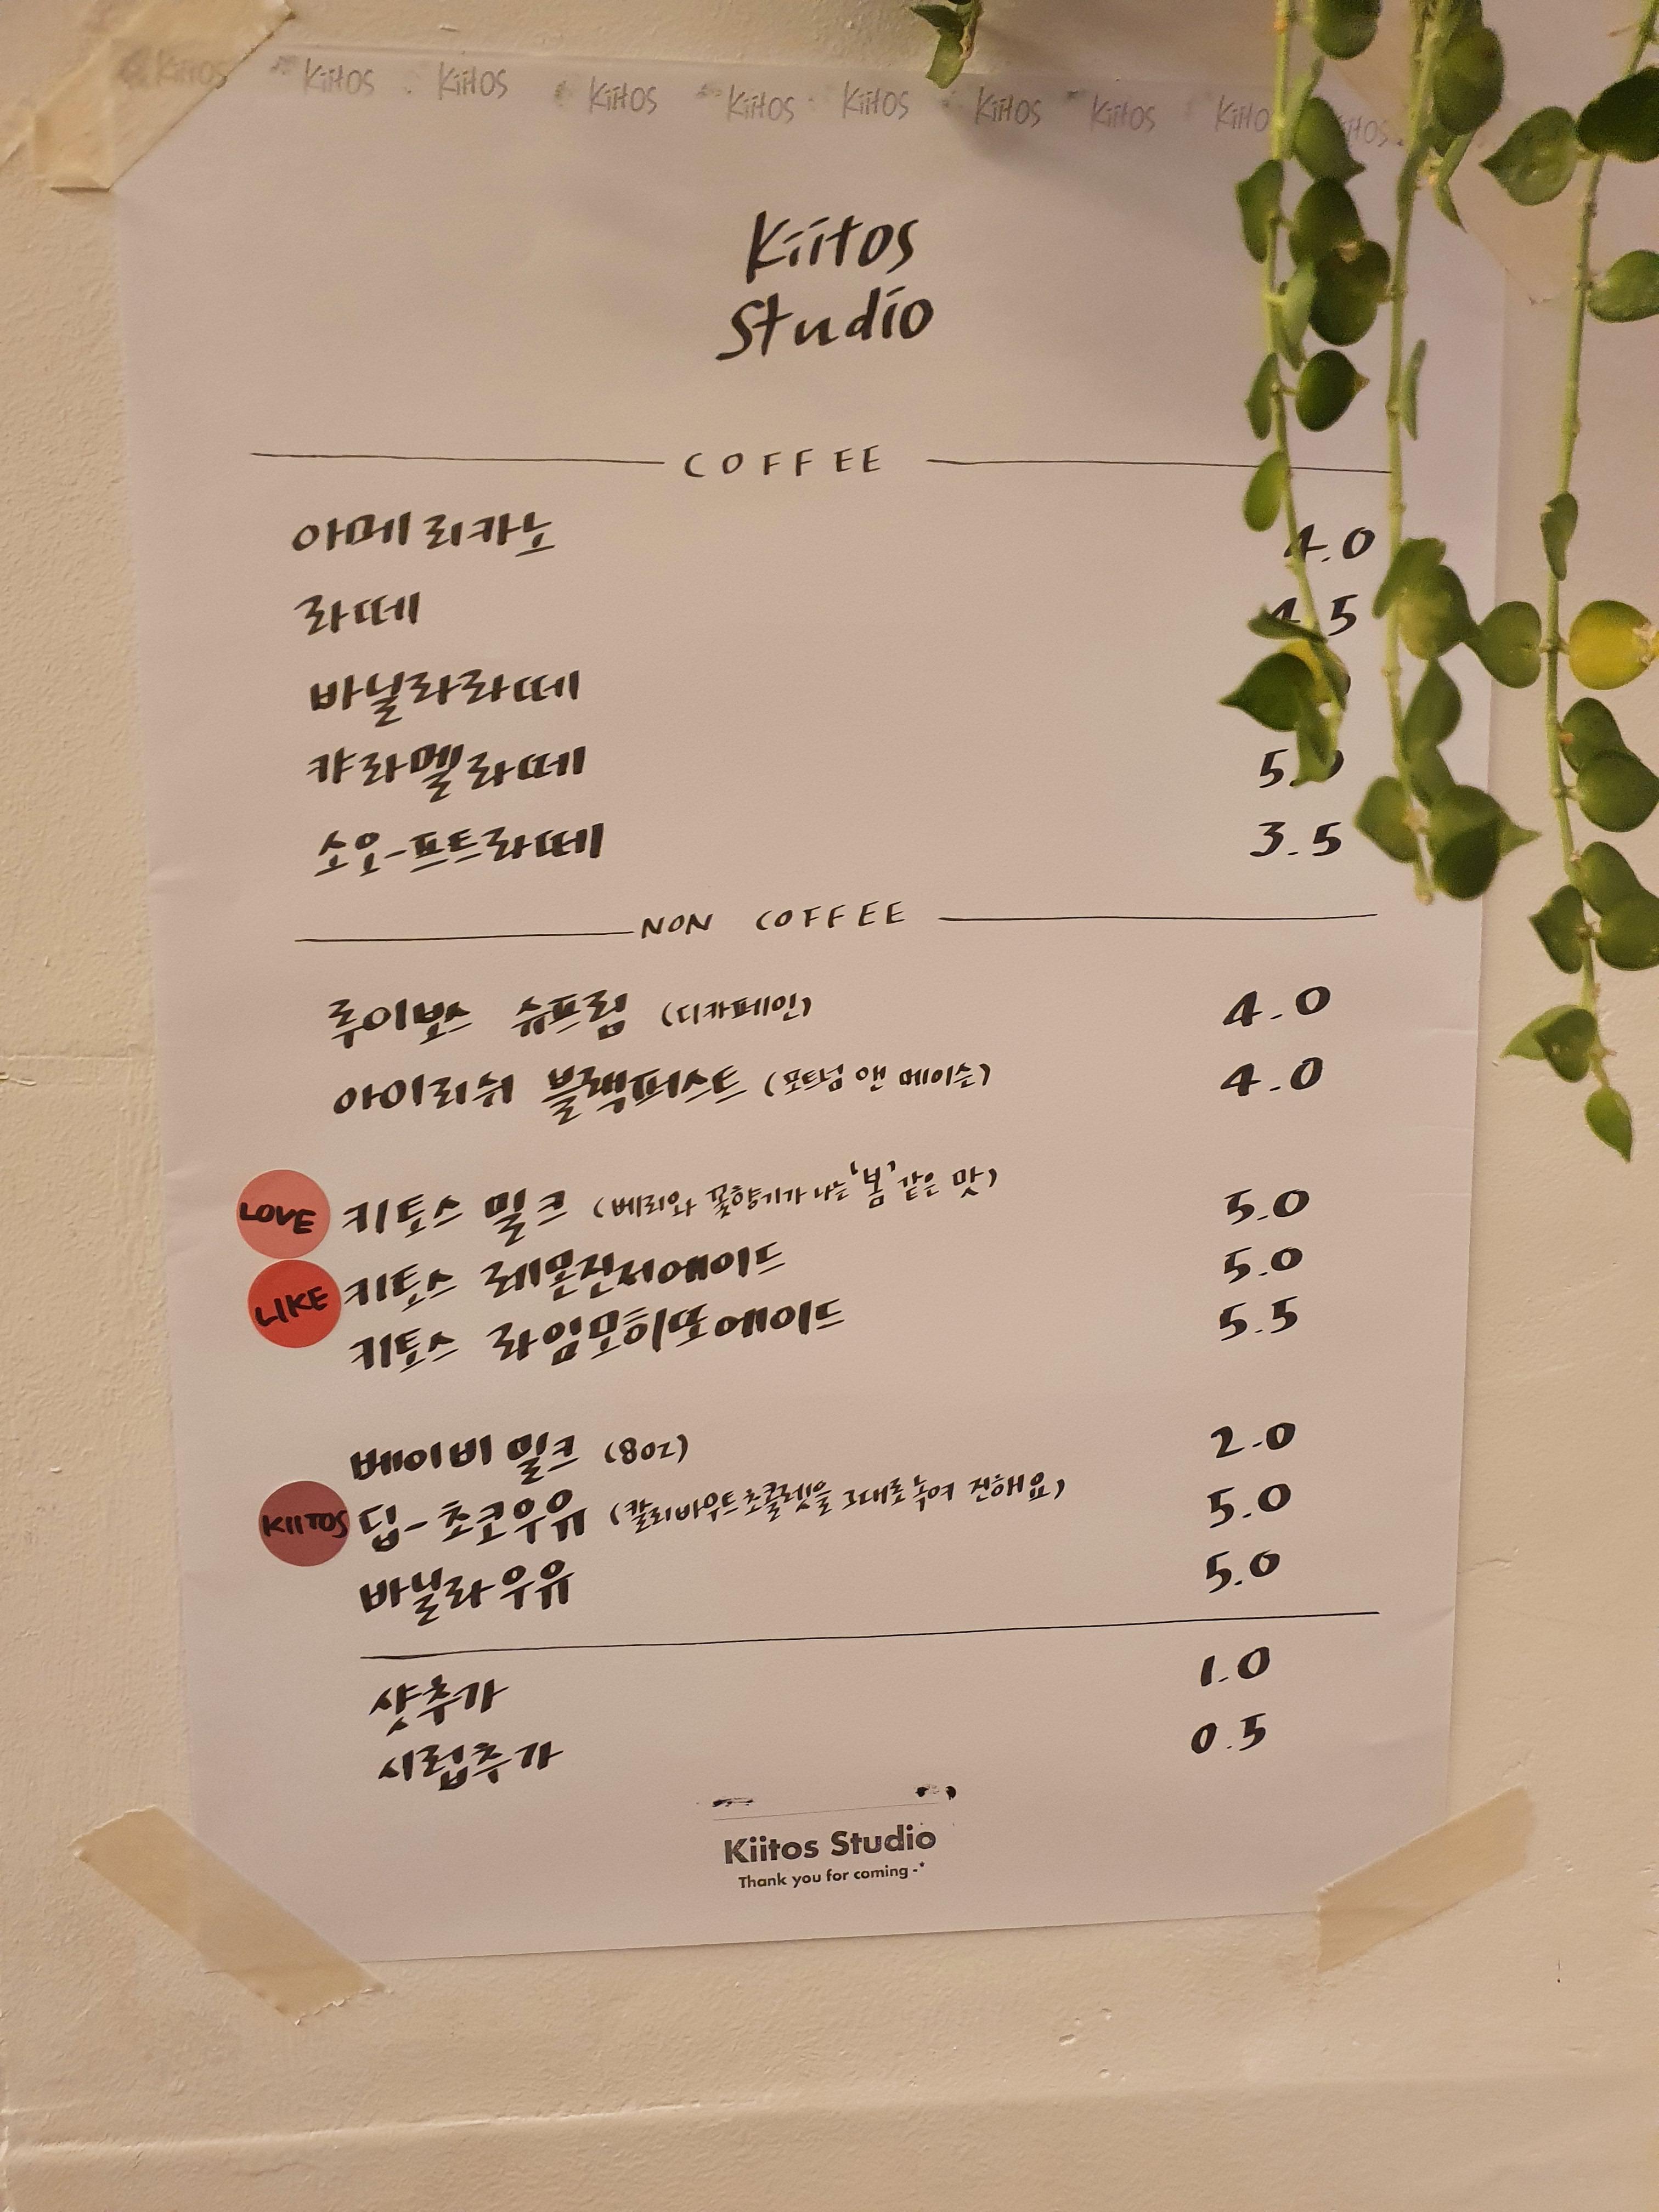 Kiitos Kiitos Kiitos Kiitos Kiitos Kiitos Kiitos Kiitos
Kiitos
Studio
COFFEE
아메리카노 4.0
라떼 4.5
바닐라라떼
캬라멜라떼 5.0
소오-프트라떼 3.5
NON COFFEE
루이보스 슈프림 (디카페인) 4.0
아이리쉬 블랙퍼스트 (포트넘 앤 메이슨) 4.0
LOVE 키토스 밀크 (베리와 꽃향기가 나는 '봄' 같은 맛) 5.0
LIKE 키토스 레몬진저에이드 5.0
키토스 라임모히또에이드 5.5
베이비밀크 (8oz) 2.0
KIITOS 딥-초코우유 (칼리바우트초콜렛을 그대로 녹여 진해요) 5.0
바닐라우유 5.0
샷추가 1.0
시럽추가 0.5
Kiitos Studio
Thank you for coming-*